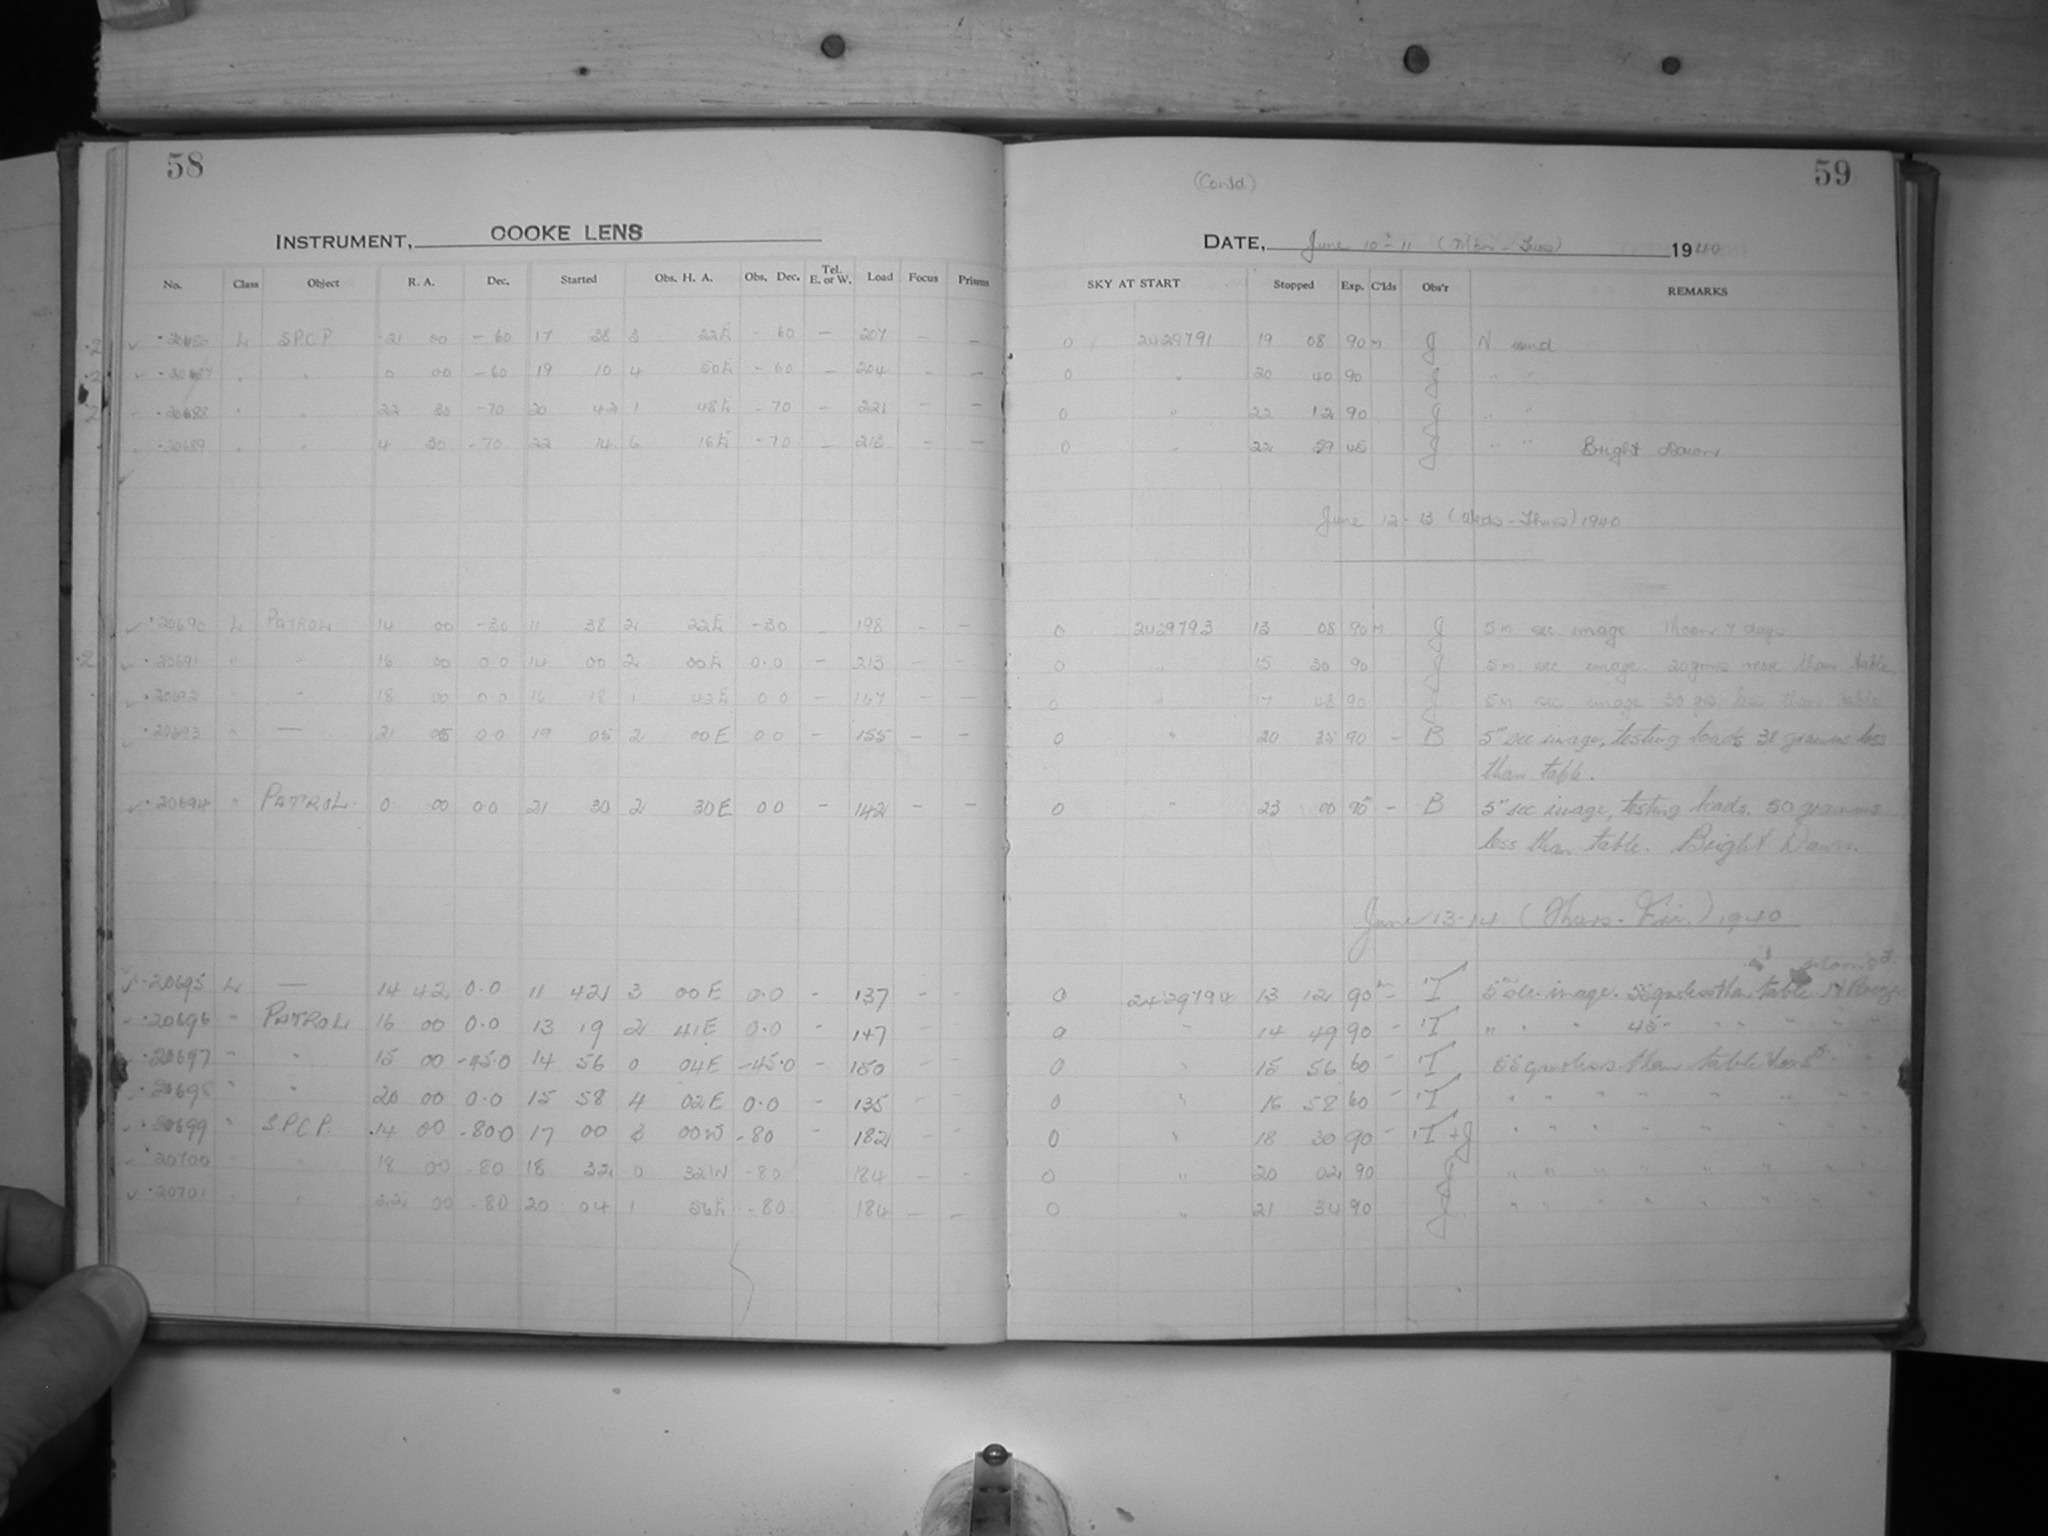 58
INSTRUMENT, COOKE LENS
No. Class Object R. A. Dec. Started Obs. H. A. Obs. Dec. Tel. E. or W. Load Focus Prisms
L SPCP 21 00 - 60 17 38 3 22E - 60 — 207 — —
" " 0 00 - 60 19 10 4 50E - 60 — 204 - —
·20688 " " 22 30 -70 20 42 1 48E - 70 — 221 — —
·20689 " " 4 30 -70 22 14 6 16E -70 — 213 — —
·20690 L PATROL 14 00 -30 11 38 2 22E -30 — 198 — —
·20691 " " 16 00 0.0 14 00 2 00E 0.0 — 213 — —
·20692 " " 18 00 0.0 16 18 1 42E 0.0 — 167 — —
·20693 " — 21 05 0.0 19 05 2 00E 0.0 — 155 — —
·20694 " PATROL 0 00 0.0 21 30 2 30E 0.0 — 142 — —
·20695 L — 14 42 0.0 11 42 3 00E 0.0 - 137 - -
·20696 " PATROL 16 00 0.0 13 19 2 41E 0.0 " 147 -
·20697 " " 15 00 -45.0 14 56 0 04E -45.0 - 150 - -
·20698 " " 20 00 0.0 15 58 4 02E 0.0 - 135 - -
·20699 " S.P.C.P. 14 00 -80.0 17 00 3 00W -80 " 182 - -
·20700 18 00 -80 18 32 0 32W -80 184 — —
·20701 22 00 -80 20 04 1 56E -80 184 — —
(Contd)
59
DATE, June 10-11 (Mon - Tues) 1940
SKY AT START Stopped Exp. C'lds Obs'r REMARKS
0 2429791 19 08 90m J N wind
0 " 20 40 90 J " "
0 " 22 12 90 J " "
0 " 22 59 45 J " " Bright Dawn
June 12-13 (Weds - Thurs) 1940
0 2429793 13 08 90m J 5m sec image Moon 7 days
0 " 15 30 90 J 5m. sec image. 20 gms more than table.
0 " 17 48 90 J 5m sec image 30 gms less than table
0 " 20 35 90 - B 5m sec image, testing loads 38 gramms less
than table.
0 " 23 00 90 - B 5m sec image, testing loads. 50 gramms
less than table. Bright Dawn.
June 13-14 (Thurs - Fri.) 1940
0 2429794 13 12 90m - T 5m sec. image. less than table
0 " 14 49 90 - T " " " 45 " " " "
0 " 15 56 60 - T 55 gms less than table
0 " 16 58 60 - T " " " " " " " "
0 " 18 30 90 - T + J " " " " " " " "
0 " 20 02 90 J " " " " " " " "
0 " 21 34 90 J " " " " " " " "